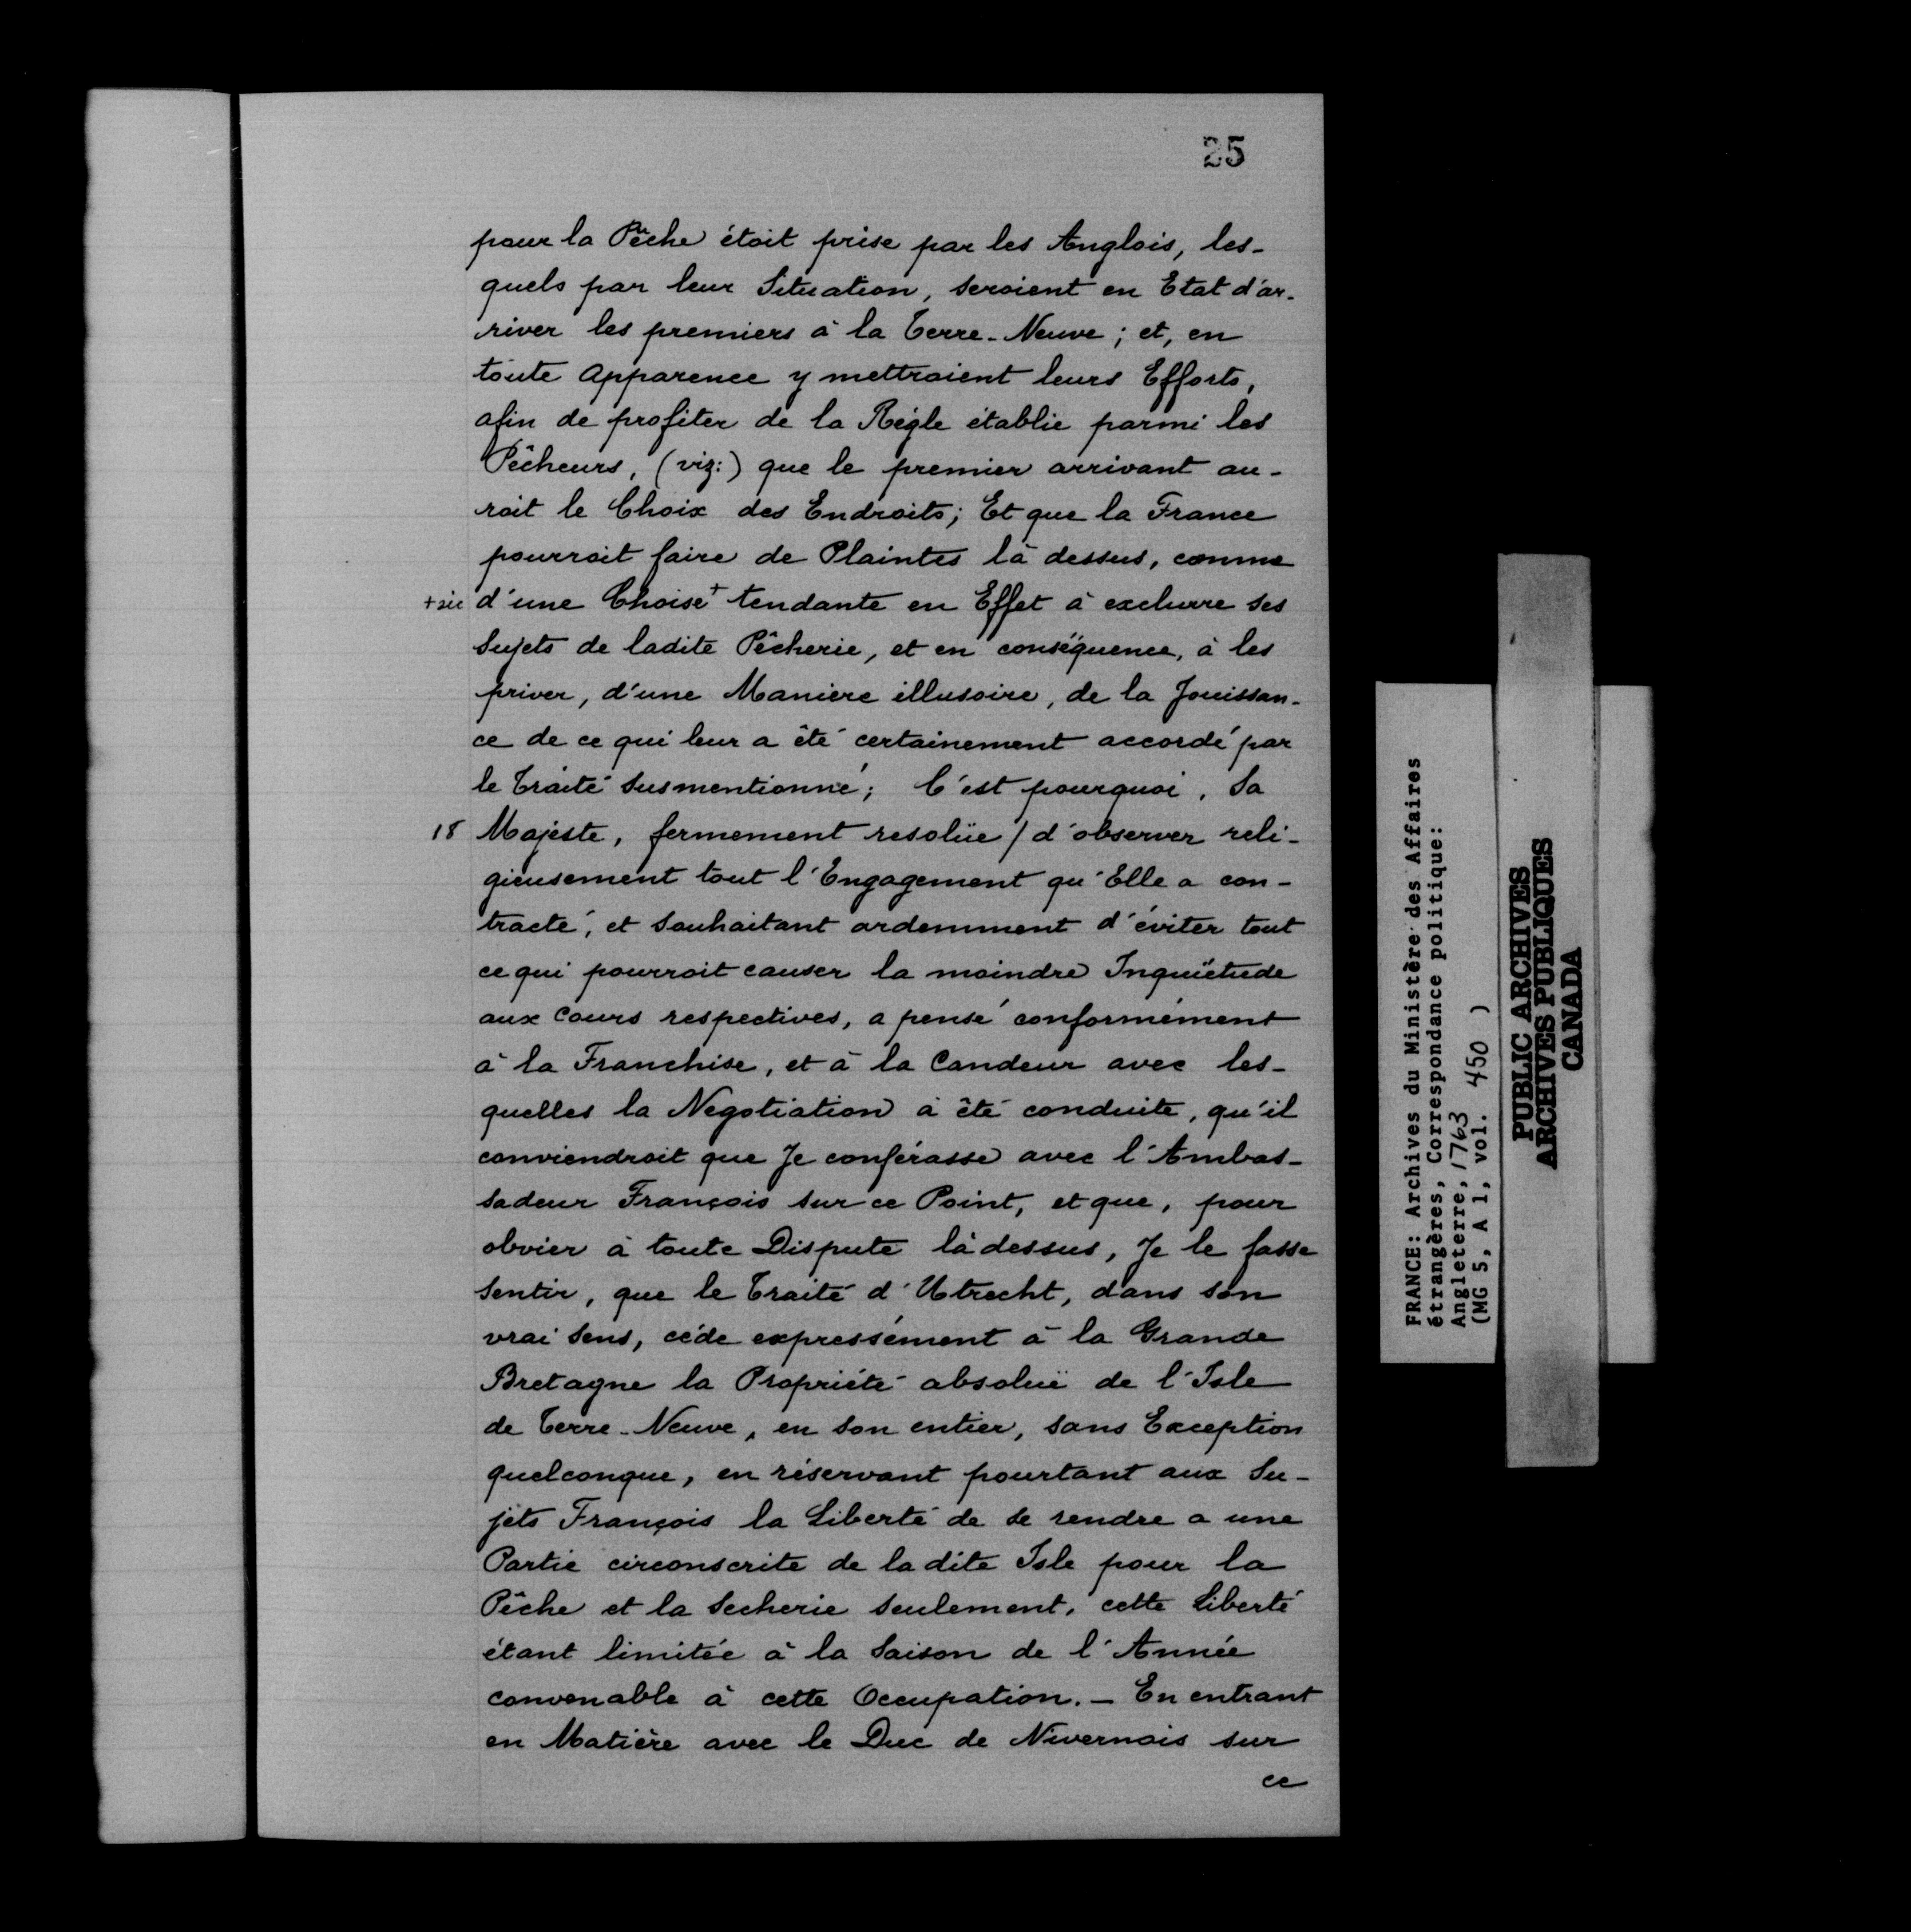 25
pour la Pêche étoit prise par les Anglois, les-
quels par leur Situation, seroient en Etat d'ar-
river les premiers à la Terre-Neuve; et, en
toute Apparence y mettroient leurs Efforts,
afin de profiter de la Règle établie parmi les
Pêcheurs, (viz:) que le premier arrivant au-
roit le Choix des Endroits; Et que la France
pourroit faire de Plaintes là dessus, comme
+ sic d'une Choise + tendante en Effet à exclurre ses
Sujets de ladite Pêcherie, et en conséquence, à les
priver, d'une Maniere illusoire, de la Jouissan-
ce de ce qui leur a été certainement accordé par
le Traité susmentionné; C'est pourquoi, Sa
18 Majeste, fermement resolüe / d'observer reli-
gieusement tout l'Engagement qu'Elle a con-
tracté, et souhaitant ardemment d'éviter tout
ce qui pourroit causer la moindre Inquiëtude
aux Cours respectives, a pensé conformément
à la Franchise, et à la Candeur avec les-
quelles la Negotiation à été conduite, qu'il
conviendroit que Je conférasse avec l'Ambas-
sadeur François sur ce Point, et que, pour
obvier à toute Dispute là dessus, Je le fasse
sentir, que le Traité d'Utrecht, dans son
vrai sens, céde expressément à la Grande
Bretagne la Propriété absoluë de l'Isle
de Terre-Neuve, en son entier, sans Exception
quelconque, en réservant pourtant aux Su-
jets François la Liberté de se rendre a une
Partie circonscrite de ladite Isle pour la
Pêche et la Secherie seulement, cette Liberté
étant limitée à la Saison de l'Année
convenable à cette Occupation. - En entrant
en Matière avec le Duc de Nivernois sur
ce
FRANCE: Archives du Ministère des Affaires
étrangères, Correspondance politique:
Angleterre, 1763
(MG 5, A 1, vol. 450 )
PUBLIC ARCHIVES
ARCHIVES PUBLIQUES
CANADA